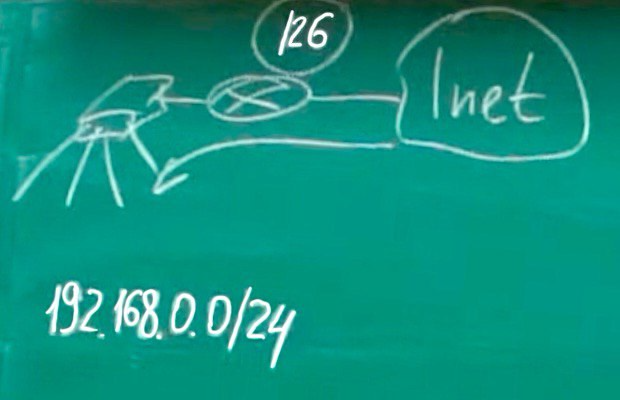 /26
Inet
192.168.0.0/24